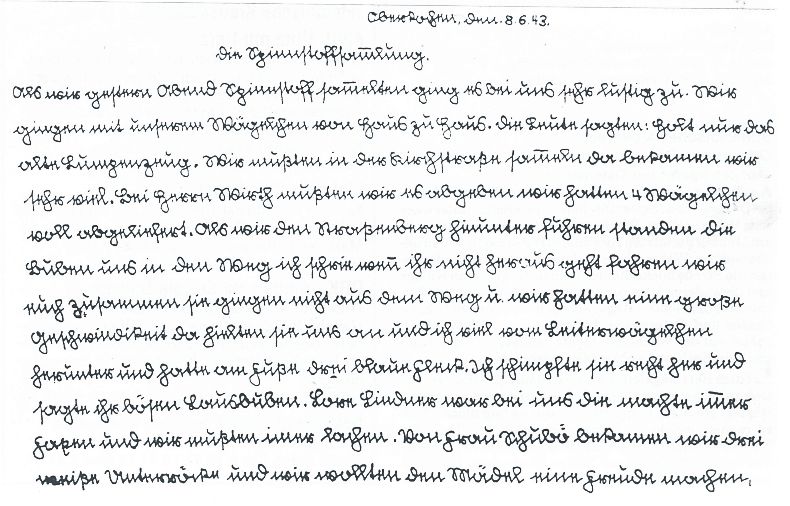 Oberkochen, den 8.6.43.
Die Spinnstoffsam̅lung.
Als wir gestern Abend Spinnstoff sam̅elten ging es bei uns sehr lustig zu. Wir
gingen mit unserem Wägelchen von Haus zu Haus. Die Leute sagten: Holt nur das
alte Lumpenzeug. Wir mußten in der Kirchstraße sam̅eln da bekamen wir
sehr viel. Bei Herrn Wirth mußten wir es abgeben wir hatten 4 Wägelchen
voll abgeliefert. Als wir den Straßenberg hinunter fuhren standen die
Buben uns in den Weg ich schrie wen̅ ihr nicht heraus geht fahren wir
euch zusammen sie gingen nicht aus dem Weg u. wir hatten eine große
Geschwindikeit da hielten sie uns an und ich viel vom Leiterwägelchen
herunter und hatte am Fuße drei blaue Fleck. Ich schimpfte sie recht her und
sagte ihr bösen Lausbuben. Lore Lindner war bei uns die machte im̅er
Faxen und wir mußten im̅er lachen. Von Frau Schubö bekamen wir drei
weiße Unterröcke und wir wollten den Mädel eine Freude machen,